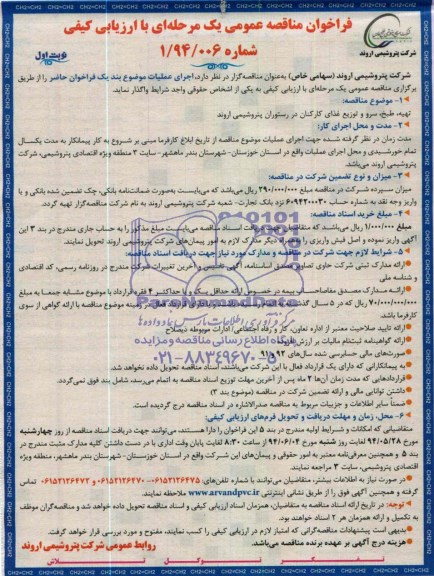 فراخوان مناقصه عمومی یک مرحله‌ای با ارزیابی کیفی
شماره ۱/۹۴/۰۰۶
نوبت اول
شرکت پتروشیمی اروند
شرکت پتروشیمی اروند (سهامی خاص) به‌عنوان مناقصه‌گزار در نظر دارد، اجرای عملیات موضوع بند یک فراخوان حاضر را از طریق
برگزاری مناقصه عمومی یک مرحله‌ای با ارزیابی کیفی به یکی از اشخاص حقوقی واجد شرایط واگذار نماید.
۱- موضوع مناقصه:
تهیه، طبخ، سرو و توزیع غذای کارکنان در رستوران پتروشیمی اروند
۲- مدت و محل اجرای کار:
مدت زمان در نظر گرفته شده جهت اجرای عملیات موضوع مناقصه از تاریخ ابلاغ کارفرما مبنی بر شروع به کار پیمانکار به مدت یکسال
تمام خورشیدی و محل اجرای عملیات واقع در استان خوزستان- شهرستان بندر ماهشهر- سایت ۳ منطقه ویژه اقتصادی پتروشیمی، شرکت
پتروشیمی اروند می‌باشد.
۳- میزان و نوع تضمین شرکت در مناقصه:
میزان سپرده شرکت در مناقصه مبلغ ۲۹۰/۰۰۰/۰۰۰ ریال می‌باشد که می‌بایست به‌صورت ضمانت‌نامه بانکی، چک تضمین شده بانکی و یا
واریز وجه نقد به شماره حساب ۶۰۹۴۲۰۰۳۰ نزد بانک تجارت- شعبه شرکت پتروشیمی اروند به نام شرکت مناقصه‌گزار تهیه گردد.
۴- مبلغ خرید اسناد مناقصه:
مبلغ ۱/۰۰۰/۰۰۰ ریال می‌باشد که متقاضیان جهت دریافت اسناد مناقصه می‌بایست مبلغ مذکور را به حساب جاری مندرج در بند ۳ این
آگهی واریز نموده و اصل فیش واریزی را به همراه دیگر مدارک لازم به امور پیمان‌های شرکت پتروشیمی اروند تحویل نمایند.
۵- شرایط لازم جهت شرکت در مناقصه و مدارک مورد نیاز جهت دریافت اسناد مناقصه:
ارائه مدارک ثبتی شرکت حاوی تصاویر مصدق اساسنامه، آگهی تاسیس و آخرین تغییرات شرکت مندرج در روزنامه رسمی، کد اقتصادی
و شناسه ملی
۷۰/۰۰۰/۰۰۰/۰۰۰ ریال که در ۵ سال گذشته
کارفرما باشد
ارائه تایید صلاحیت معتبر از اداره تعاون، کار و رفاه اجتماعی/ ادارات مربوطه ذیصلاح
ارائه گواهینامه ثبت‌نام مالیات بر ارزش افزوده
صورت‌های مالی حسابرسی شده سال‌های ۹۲ و ۹۱
به پیمانکارانی که دارای یک قرارداد فعال با این شرکت می‌باشند، اسناد مناقصه تحویل داده نخواهد شد.
قراردادهایی که مدت زمان آن‌ها ۲ ماه پس از آخرین مهلت توزیع اسناد مناقصه به اتمام می‌رسد، شامل بند فوق نمی‌گردد.
داشتن توانایی مالی و ارائه تضمین شرکت در مناقصه (موضوع بند ۳)
ضمناً سایر اطلاعات و جزییات مربوط به مناقصه صدرالاشاره در اسناد مناقصه درج گردیده است.
۶- محل، زمان و مهلت دریافت و تحویل فرم‌های ارزیابی کیفی:
متقاضیانی که امکانات و شرایط اولیه مندرج در بند ۵ این فراخوان را دارا هستند، می‌توانند جهت دریافت اسناد مناقصه از روز چهارشنبه
مورخ ۹۴/۰۵/۲۸ لغایت روز شنبه مورخ ۹۴/۰۶/۰۴ از ساعت ۸:۳۰ لغایت پایان وقت اداری با در دست داشتن کلیه مدارک مثبت مندرج در
بند ۵ و همچنین معرفی‌نامه معتبر به امور حقوقی و پیمان‌های این شرکت واقع در استان خوزستان- شهرستان بندر ماهشهر، منطقه ویژه
اقتصادی پتروشیمی، سایت ۳ مراجعه نمایند.
در صورت نیاز به اطلاعات بیشتر، متقاضیان می‌توانند با شماره تلفن‌های: ۰۶۱۵۲۱۲۶۴۷۵-۰۶۱۵۲۱۲۶۴۷۰ و ۰۶۱۵۲۱۲۶۴۷۲ تماس
گرفته و همچنین آگهی فوق را از طریق نشانی اینترنتی www.arvandpvc.ir ملاحظه نمایند.
توجه: در تاریخ ارائه اسناد مناقصه به متقاضیان، همزمان اسناد ارزیابی کیفی و اسناد مناقصه تحویل داده خواهد شد و مناقصه‌گران موظف
به تکمیل و ارائه همزمان هر ۲ اسناد خواهند بود.
بدیهی است پیشنهادات مناقصه‌گرانی که امتیاز لازم در ارزیابی کیفی را کسب نمایند، مفتوح و مورد بررسی قرار خواهد گرفت.
هزینه درج آگهی بر عهده برنده مناقصه می‌باشد.
روابط عمومی شرکت پتروشیمی اروند
ParsNamadData
پایگاه اطلاع رسانی مناقصه و مزایده
۰۲۱-۸۸۳۴۹۶۷۰-۵